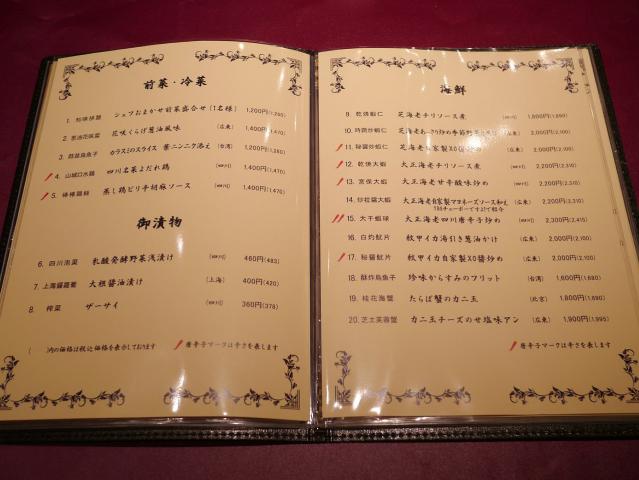 前菜・冷菜
1. 拼 シェフおまかせ前菜盛合せ(1名様) 1,200円(1,260)
2. 葱油花 花咲くらげ葱油風味 (広東) 1,400円(1,470)
3. 烏魚子 カラスミのスライス 葉ニンニク添え (台湾) 1,200円(1,260)
4. 山城口水鶏 四川名菜よだれ鶏 (四川) 1,400円(1,470)
5. 棒棒鶏絲 蒸し鶏ピリ辛胡麻ソース (四川) 1,400円(1,470)
御漬物
6. 四川泡菜 乳酸発酵野菜浅漬け (四川) 460円(483)
7. 上海醤蘿蔔 大根醤油漬け (上海) 400円(420)
8. 榨菜 ザーサイ (四川) 360円(378)
( )内の価格は税込価格を表示しております
唐辛子マークは辛さを表します
海鮮
9. 乾焼蝦仁 芝海老チリソース煮 (四川) 1,800円(1,890)
10. 時蔬炒蝦仁 芝海老あっさり炒め季節野菜 (広東)
11. 秘醤炒蝦仁 芝海老自家製XO醤炒め (広東) 2,000円(2,100)
12. 乾焼大蝦 大正海老チリソース煮 (四川) 2,200円(2,310)
13. 宮保大蝦 大正海老甘辛酸味炒め (四川) 2,200円(2,310)
14. 大蝦 大正海老自家製マヨネーズソース和え (広東) 2,200円(2,310)
15. 大千蝦球 大正海老四川唐辛子炒め (四川) 2,300円(2,415)
16. 白灼魷片 紋甲イカ湯引き葱油かけ (広東) 2,000円(2,100)
17. 秘醤魷片 紋甲イカ自家製XO醤炒め (広東) 2,000円(2,100)
18. 酥炸烏魚子 珍味からすみのフリット (台湾) 1,600円(1,680)
19. 桂花海蟹 たらば蟹のカニ玉 (北京) 1,800円(1,890)
20. 芝士芙蓉蟹 カニ玉チーズのせ塩味アン (広東) 1,900円(1,995)
唐辛子マークは辛さを表します